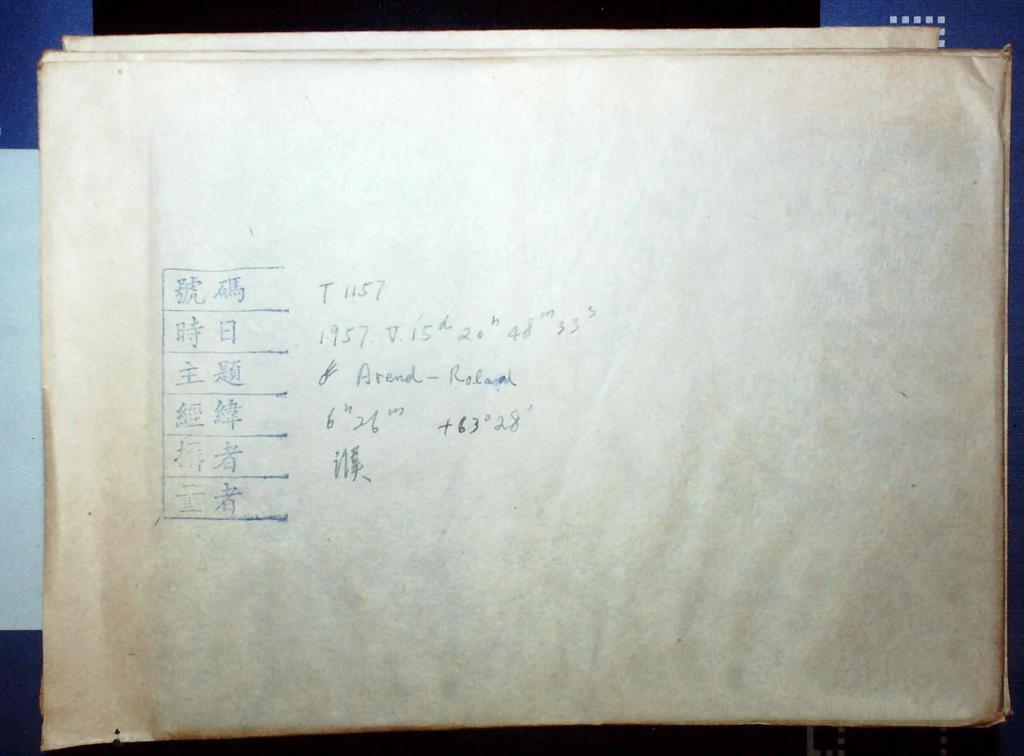 號碼 T 1157
時日 1957. V. 15ᵈ 20ʰ 48ᵐ 33ˢ
主題 ☄ Arend-Roland
經緯 6ʰ 26ᵐ +63°28′
攝者
量者